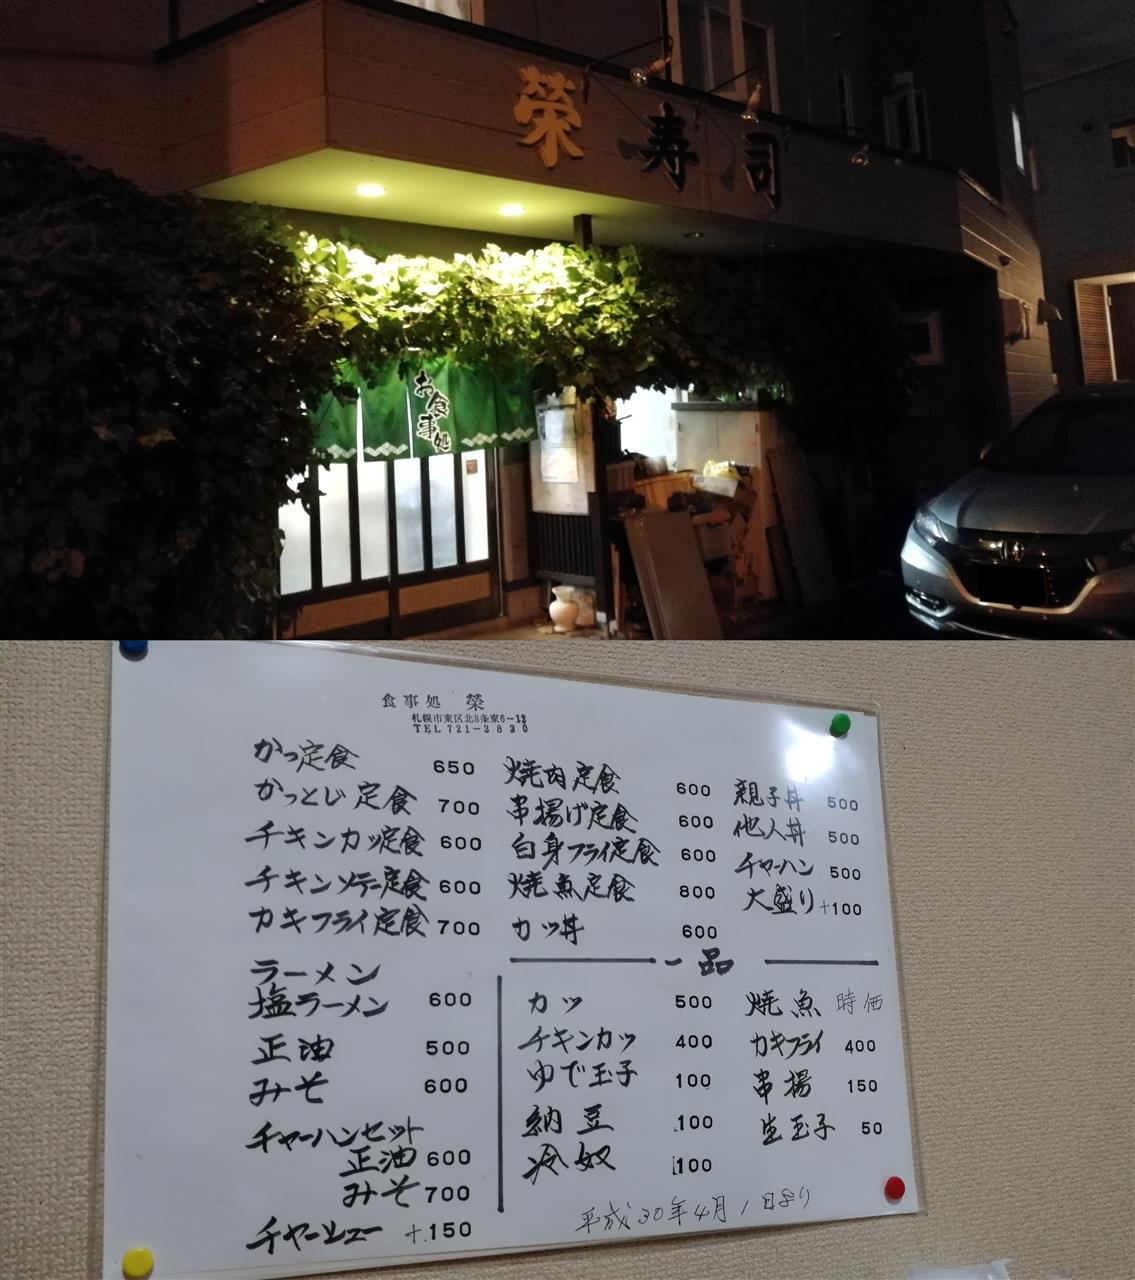 榮寿司
お食事処
食事処 榮
札幌市東区北8条東6-12
TEL 721-3830
かつ定食 650
かつとじ定食 700
チキンカツ定食 600
チキンソテー定食 600
カキフライ定食 700
焼肉定食 600
串揚げ定食 600
白身フライ定食 600
焼魚定食 800
カツ丼 600
親子丼 500
他人丼 500
チャーハン 500
大盛り +100
ラーメン
塩ラーメン 600
正油 500
みそ 600
チャーハンセット
正油 600
みそ 700
チャーシュー +150
一品
カツ 500
チキンカツ 400
ゆで玉子 100
納豆 100
冷奴 100
焼魚 時価
カキフライ 400
串揚 150
生玉子 50
平成30年4月1日より